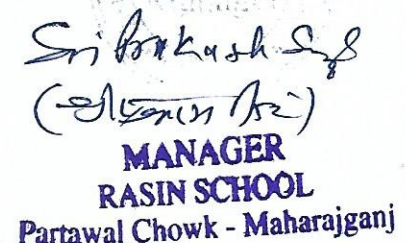 Sri Prakash Singh
(श्री प्रकाश सिंह)
MANAGER
RASIN SCHOOL
Partawal Chowk - Maharajganj